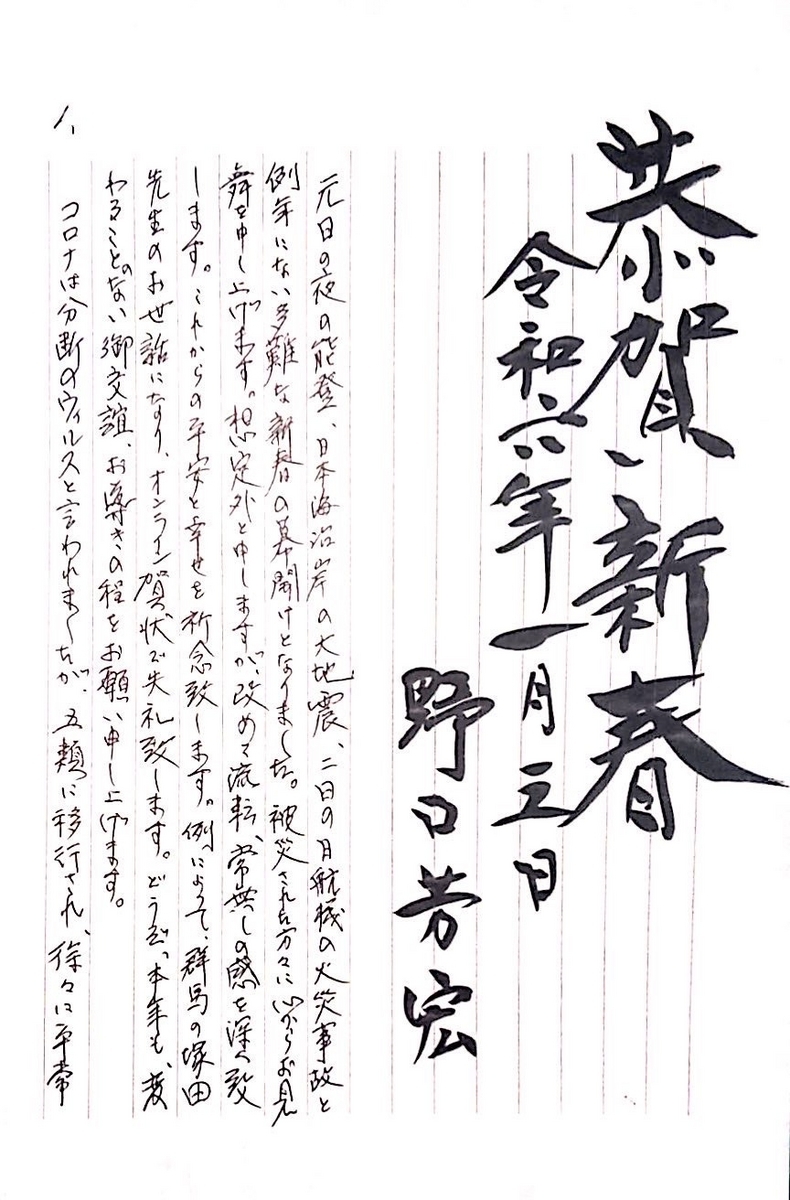 恭賀新春
令和六年一月三日
野口芳宏
元日の夜の能登、日本海沿岸の大地震、二日の日航機の火災事故と
例年にない多難な新春の幕開けとなりました。被災された方々に心からお見
舞を申し上げます。想定外と申しますが、改めて流転、常無しの感を深く致
します。これからの平安と幸せを祈念致します。例によって、群馬の塚田
先生のお世話になり、オンライン賀状で失礼致します。どうぞ、本年も、変
わることのない御交誼、お導きの程をお願い申し上げます。
コロナは分断のウィルスと言われましたが、五類に移行され、徐々に平常